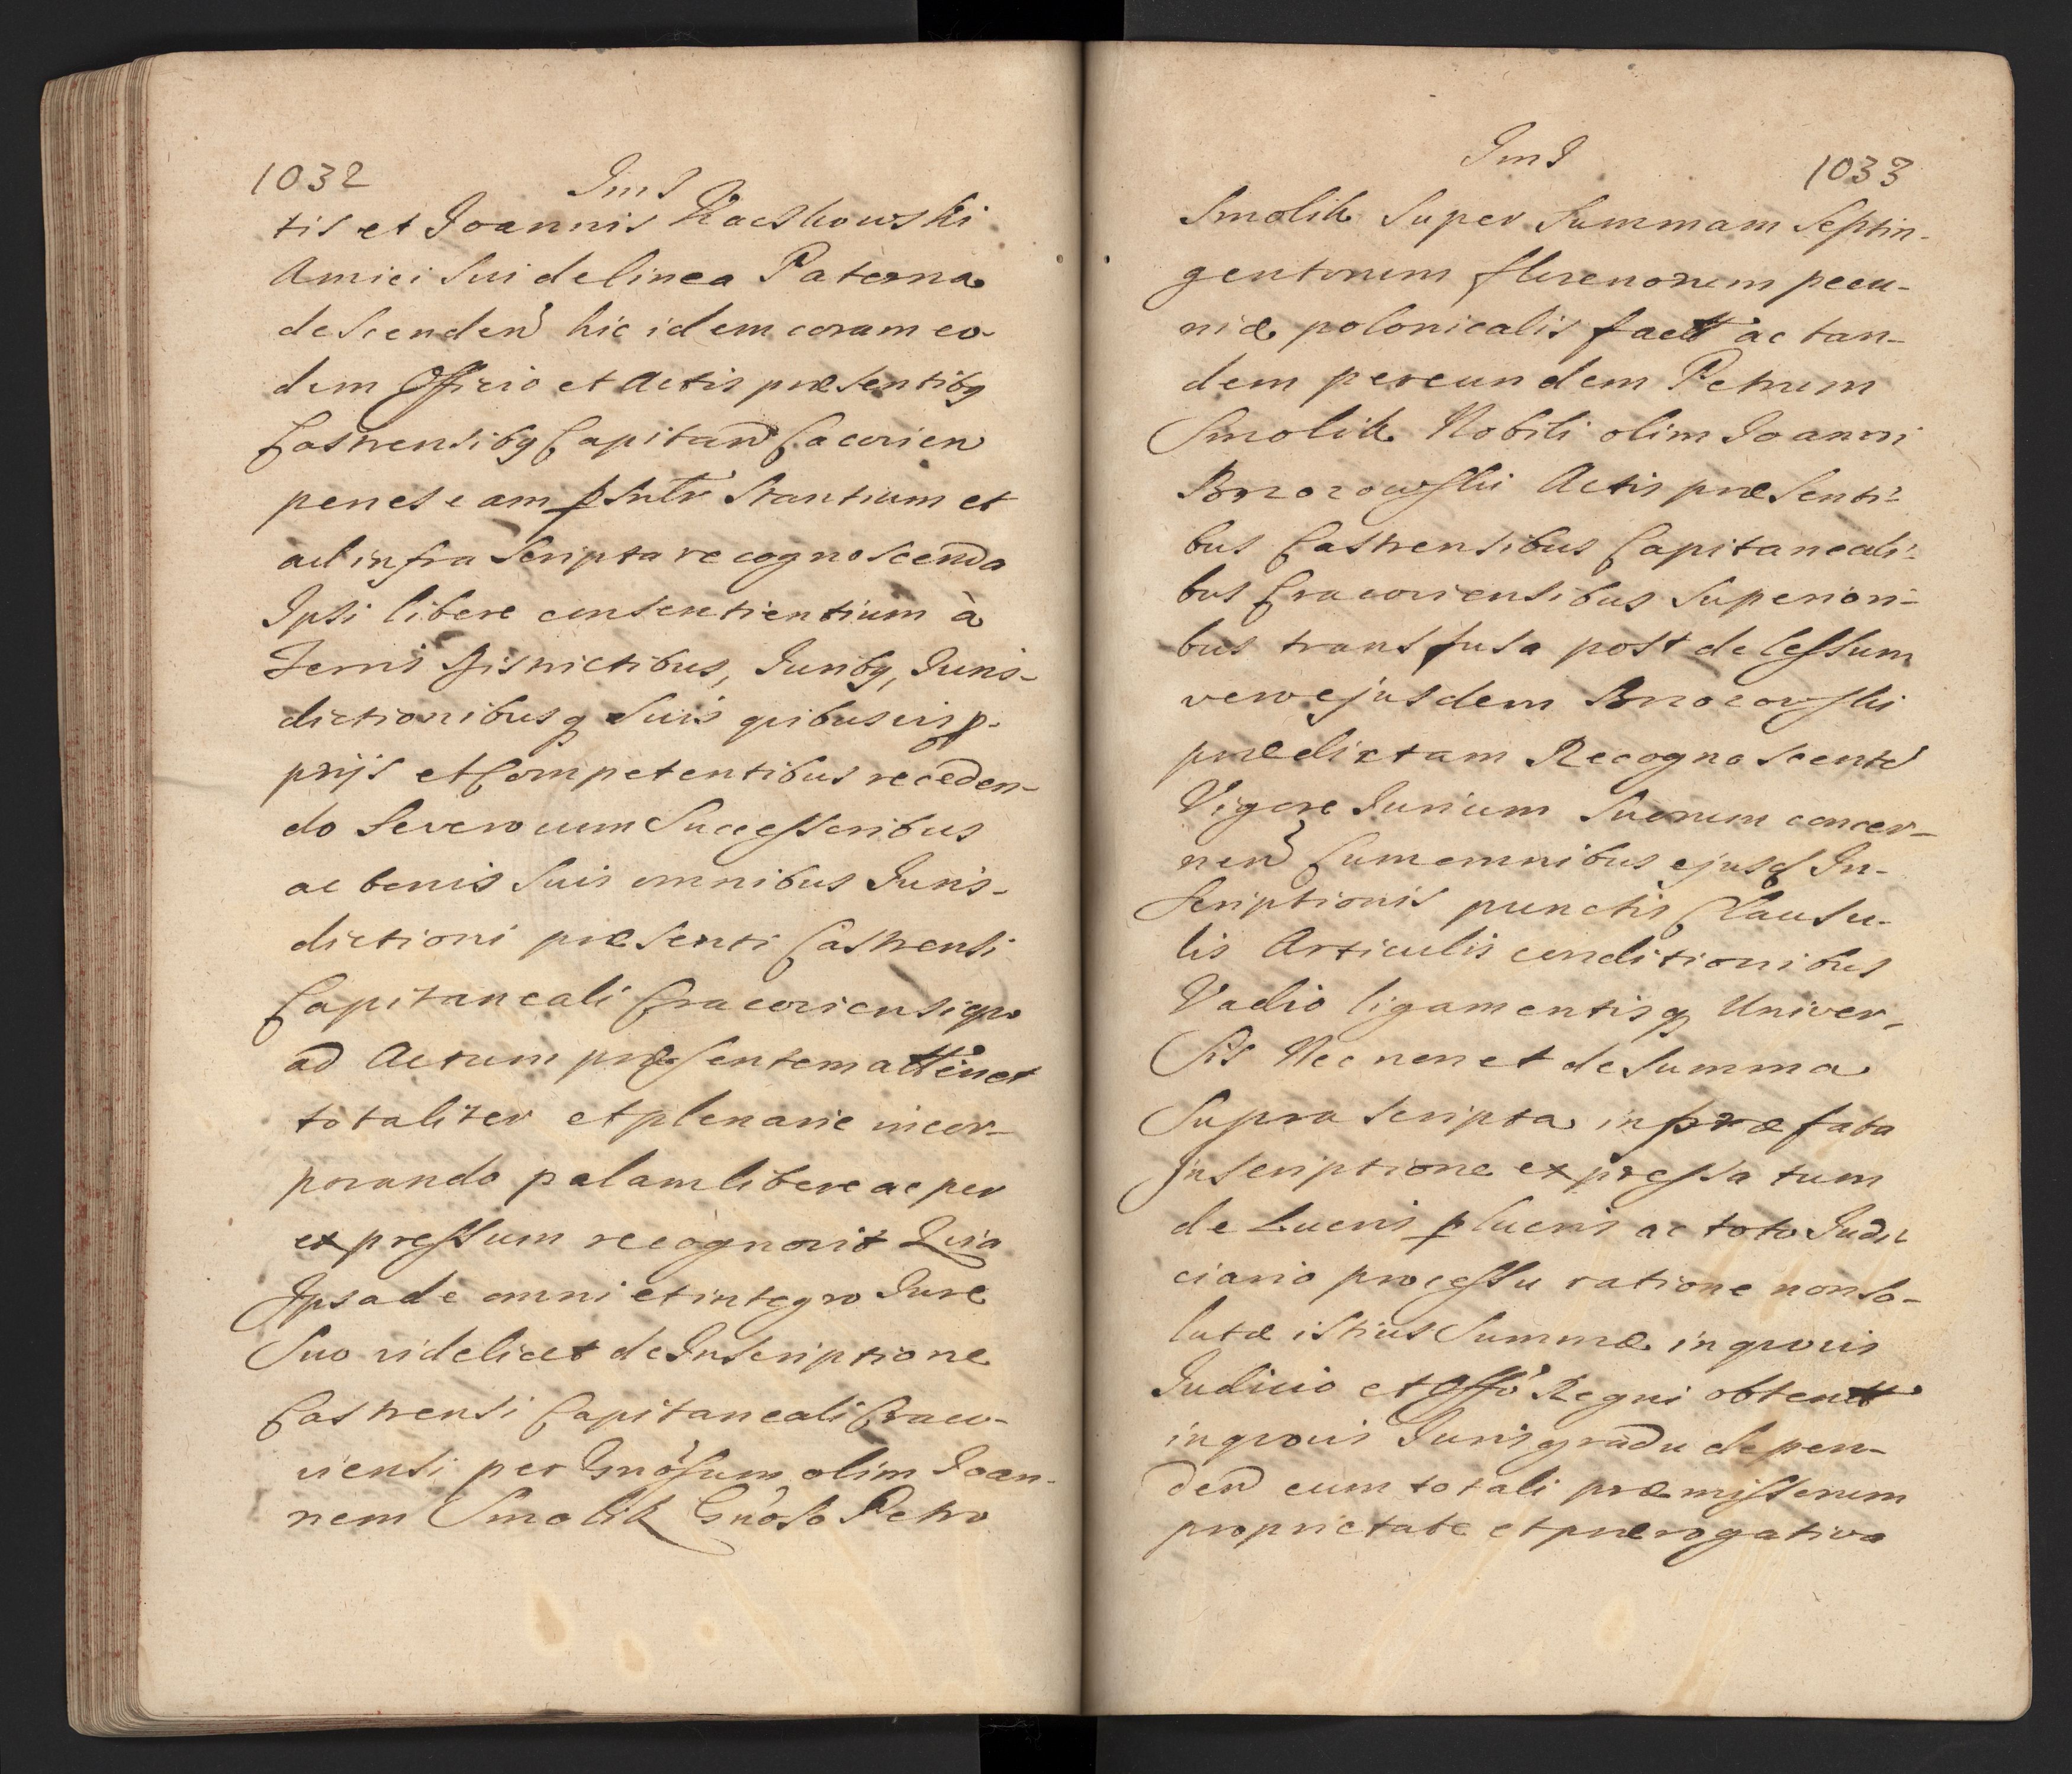 1032
tis et Joannis Raczkowski
Amici Sui de linea Paterna
descenden hic idem coram eo-
dem Officio et Actis præsentibq
Castrensibq Capitan Cacovien
penes eam pSntr Stantium et
ad infra Scripta recognoscenda
Ipsi libere consentientium à
Terris Districtibus, Juribq, Juris-
dictionibusq Suis quibusvis p-
prijs et Competentibus receden-
do Severo cum Successoribus
ac bonis Suis omnibus Juris-
dictioni præsenti Castrensi
Capitaneali Cracoviensi quo
ad Actum præsentem attinet
totaliter et plenarie incor-
porando palam libere ac per
expressum recognovit Quia
Ipsa de omni et integro Jure
Suo videlicet de Inscriptione
Castrensi Capitaneali Craco-
viensi per Gnosum olim Joan-
nem Smolik Gnoso Petro
1033
Smolik Super Summam Septin-
gentorum florenorum pecu-
niæ polonicalis fact ac tan-
dem per eundem Petrum
Smolik Nobili olim Joanni
Brzozowski Actis præsenti-
bus Castrensibus Capitaneali-
bus Cracoviensibus Superiori-
bus transfusa post decessum
vero ejusdem Brzozowski
prædictam Recognoscente
Vigore Jurium Suorum concer-
nen Cum omnibus ejusd In-
scriptionis punctis Clausu-
lis Articulis conditionibus
Vadio ligamentisq Univer-
sis Nec non et de Summa
Supra scripta in præfata
Inscriptione expressa tum
de Lucris plucris ac toto Judi
ciario processu ratione non so-
lutæ istius Summæ in quovis
Judicio et Offo Regni obtent
in quovis Juris gradu depen-
den cum totali præmissorum
proprietate et prærogativa